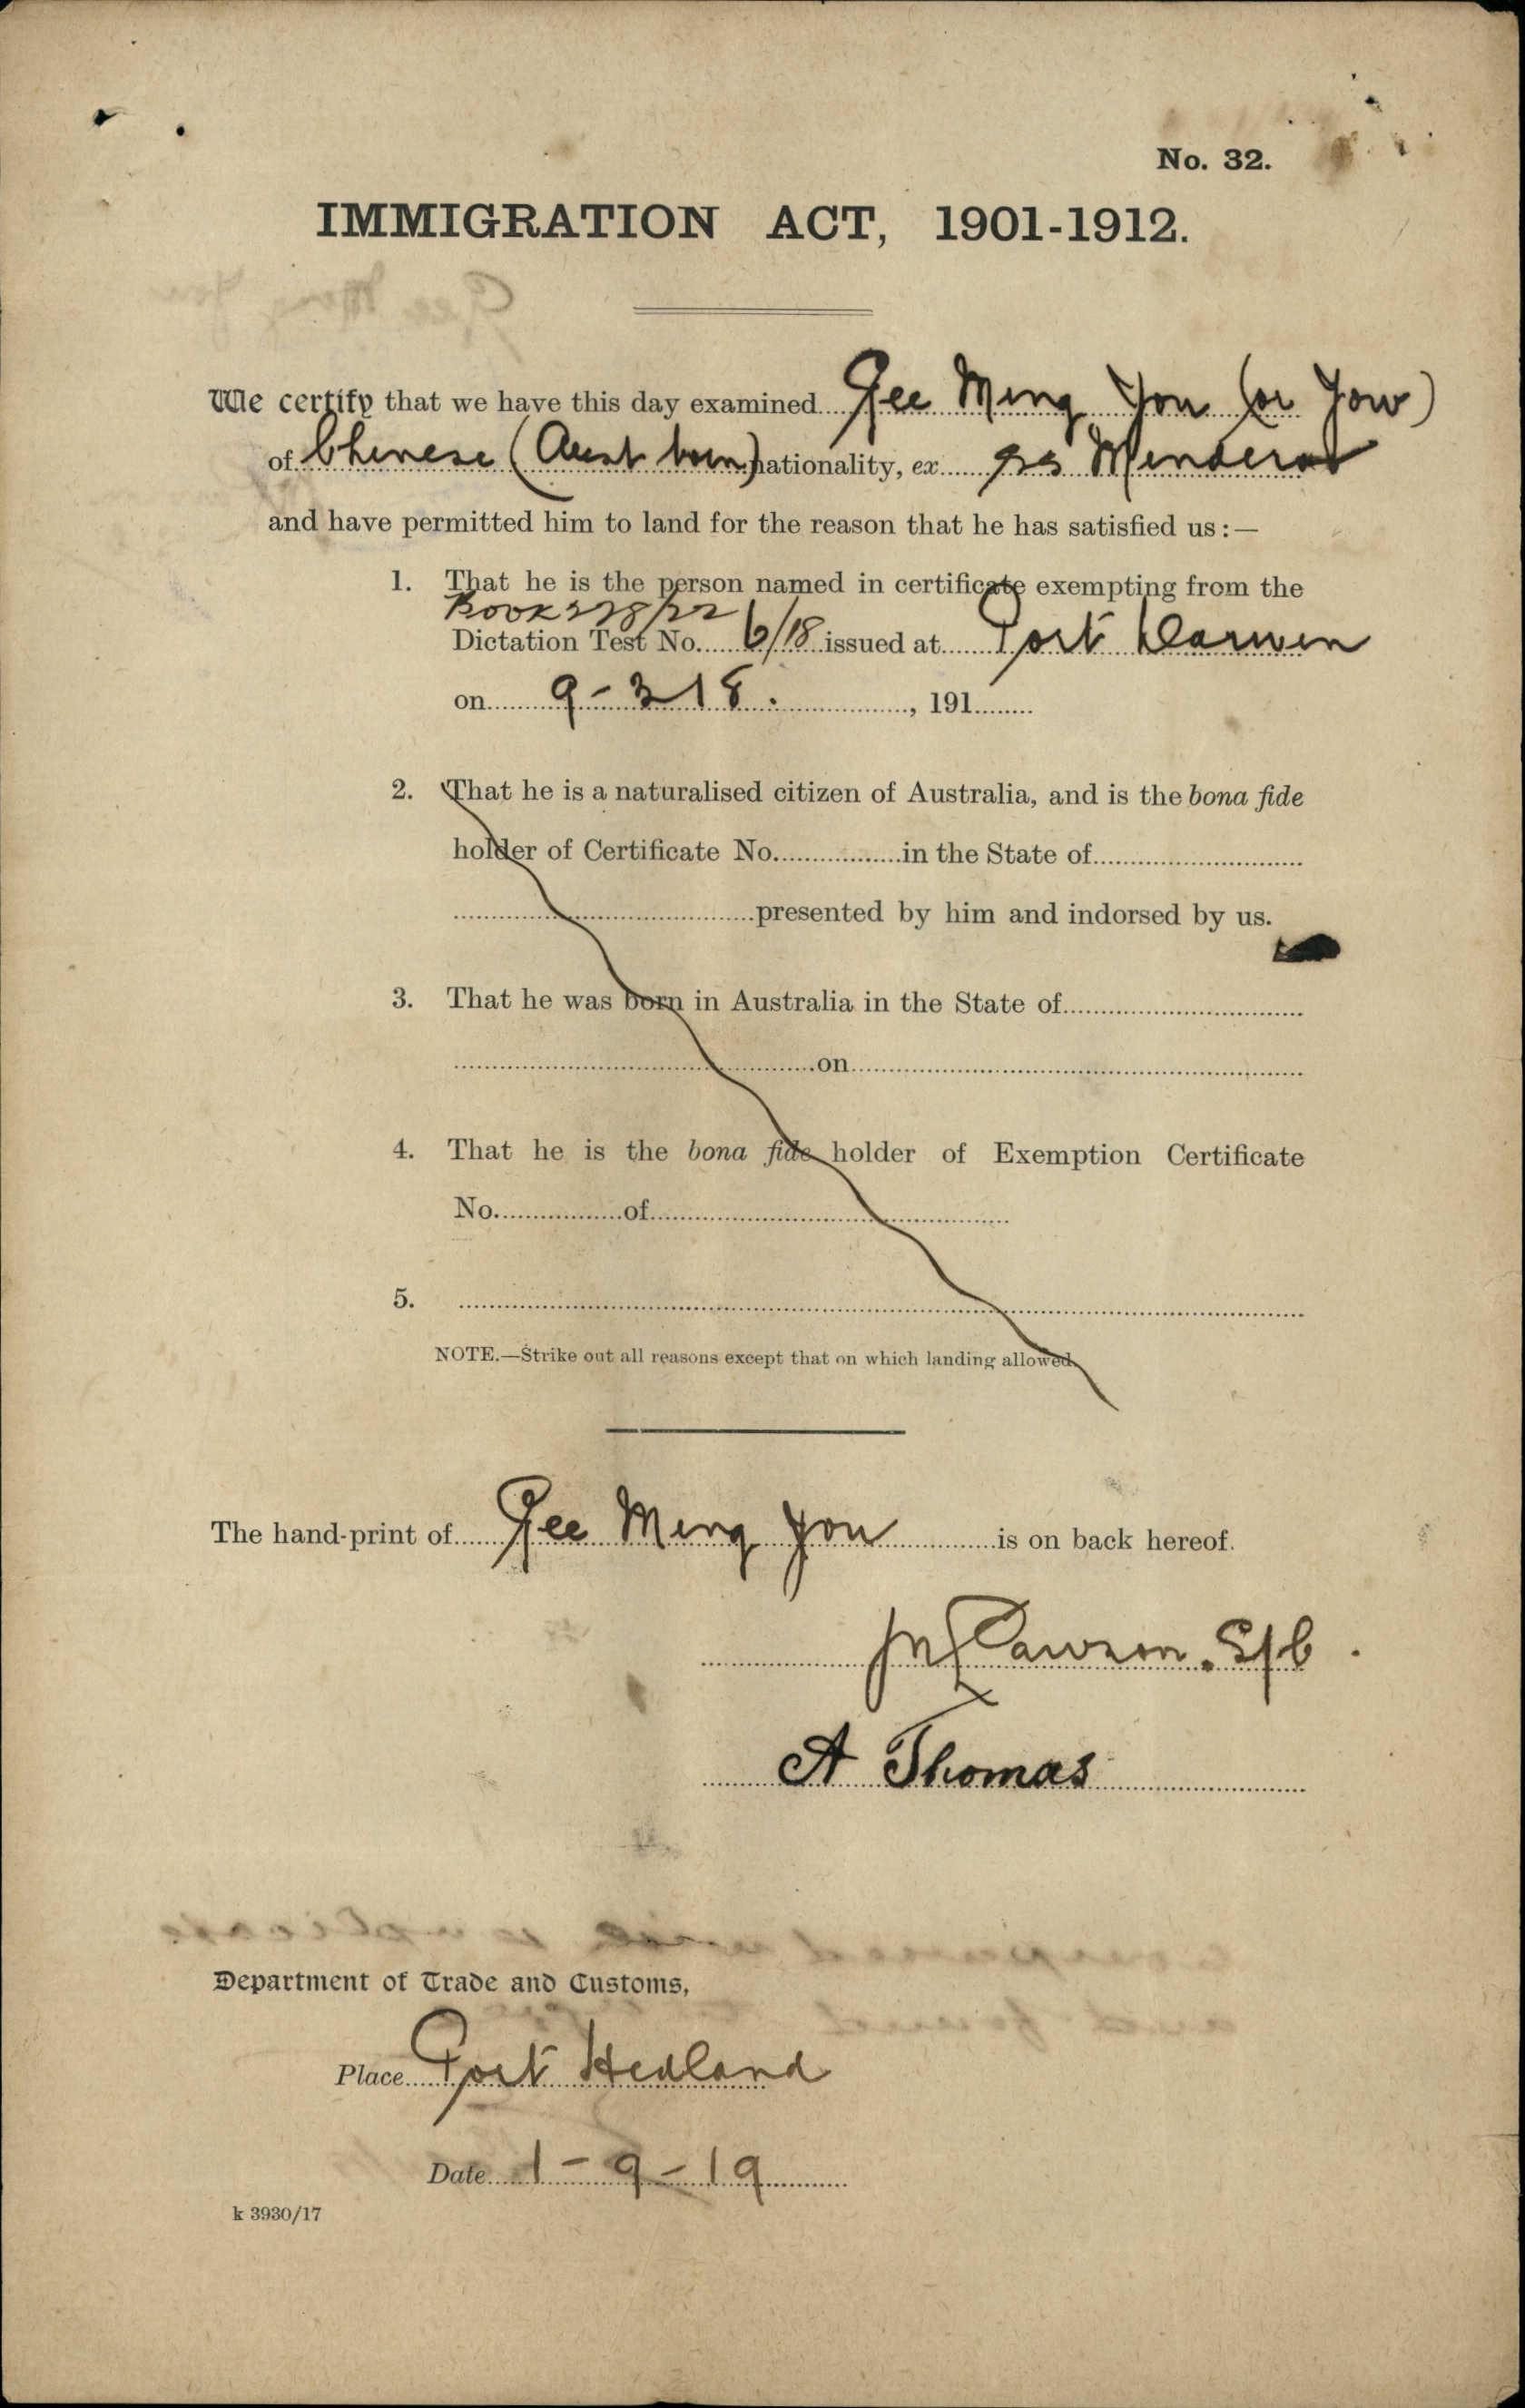 No. 32.
IMMIGRATION ACT, 1901-1912.
We certify that we have this day examined Gee Ming You (or Yow)
of Chinese (Aust born) nationality, ex ss Minderoo
and have permitted him to land for the reason that he has satisfied us:—
1. That he is the person named in certificate exempting from the
Book 278/22
Dictation Test No. 6/18 issued at Port Darwin
on 9-3 18. , 191
2. That he is a naturalised citizen of Australia, and is the bona fide
holder of Certificate No. in the State of
presented by him and indorsed by us.
3. That he was born in Australia in the State of
on
4. That he is the bona fide holder of Exemption Certificate
No. of
5.
NOTE.—Strike out all reasons except that on which landing allowed.
The hand-print of Gee Ming You is on back hereof.
Lawson. S/C.
A Thomas
Department of Trade and Customs,
Place Port Hedland
Date 1-9-19
k 3930/17